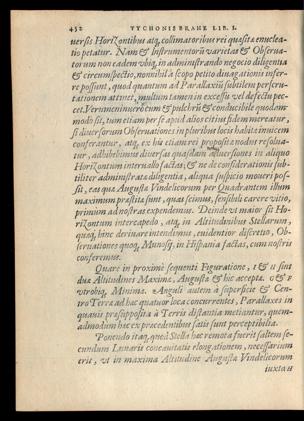 452 TYCHONIS BRAHE LIB. I.
uersis Horizontibus atq; collimatoribus rei quæsitæ enuclea-
tio petatur. Nam & Instrumentorū varietas & Obserua-
torum non eadem vbiq; in administrando negocio diligentia
& circumspectio, nonnihil à scopo petito diuagationis infer-
re possunt, quod quantum ad Parallaxiū subtilem perscru-
tationem attinet, multum tamen in excessu vel defectu pec-
cet. Veruntamen
modo sit, tum etiam per se apud alios citius fidem mereatur,
si diuersorum Obseruationes in pluribus locis habitæ inuicem
conferantur, atq; ex his etiam rei propositæ nodus resolua-
tur, adhibebimus diuersas quasdam
Horizontum interuallo factas; & ne de consideratione sub-
tiliter administrata diligentia, aliqua suspicio moueri pos-
sit, eas quæ Augustæ Vindelicorum per Quadrantem illum
maximum præstitæ sunt, quas scimus, sensibili carere vitio,
primùm ad nostras expendemus. Deinde vt maior sit Ho-
rizontum intercapedo, atq; in Altitudinibus Stellarum,
quæq; hinc deriuare intendimus, euidentior discretio, Ob-
seruationes quoq; Munosij, in Hispania factas, cum nostris
conferemus.
Quare in proximè sequenti Figuratione, I & H sint
duæ Altitudines Maximæ, Augustæ & hic accepta. O & P
vtrobiq; Minima. Anguli autem à superficie & Cen-
tro Terræ ad hæc quatuor loca concurrentes, Parallaxes in
quauis præsupposita à Terris distantia metiantur, quem-
admodum hæc ex præcedentibus satis sunt perceptibilia.
Ponendo itaq; quod Stella hæc remota fuerit saltem se-
cundum Lunaris concauitatis elongationem, necessarium
erit, vt in maxima Altitudine Augustæ Vindelicorum
iuxta H